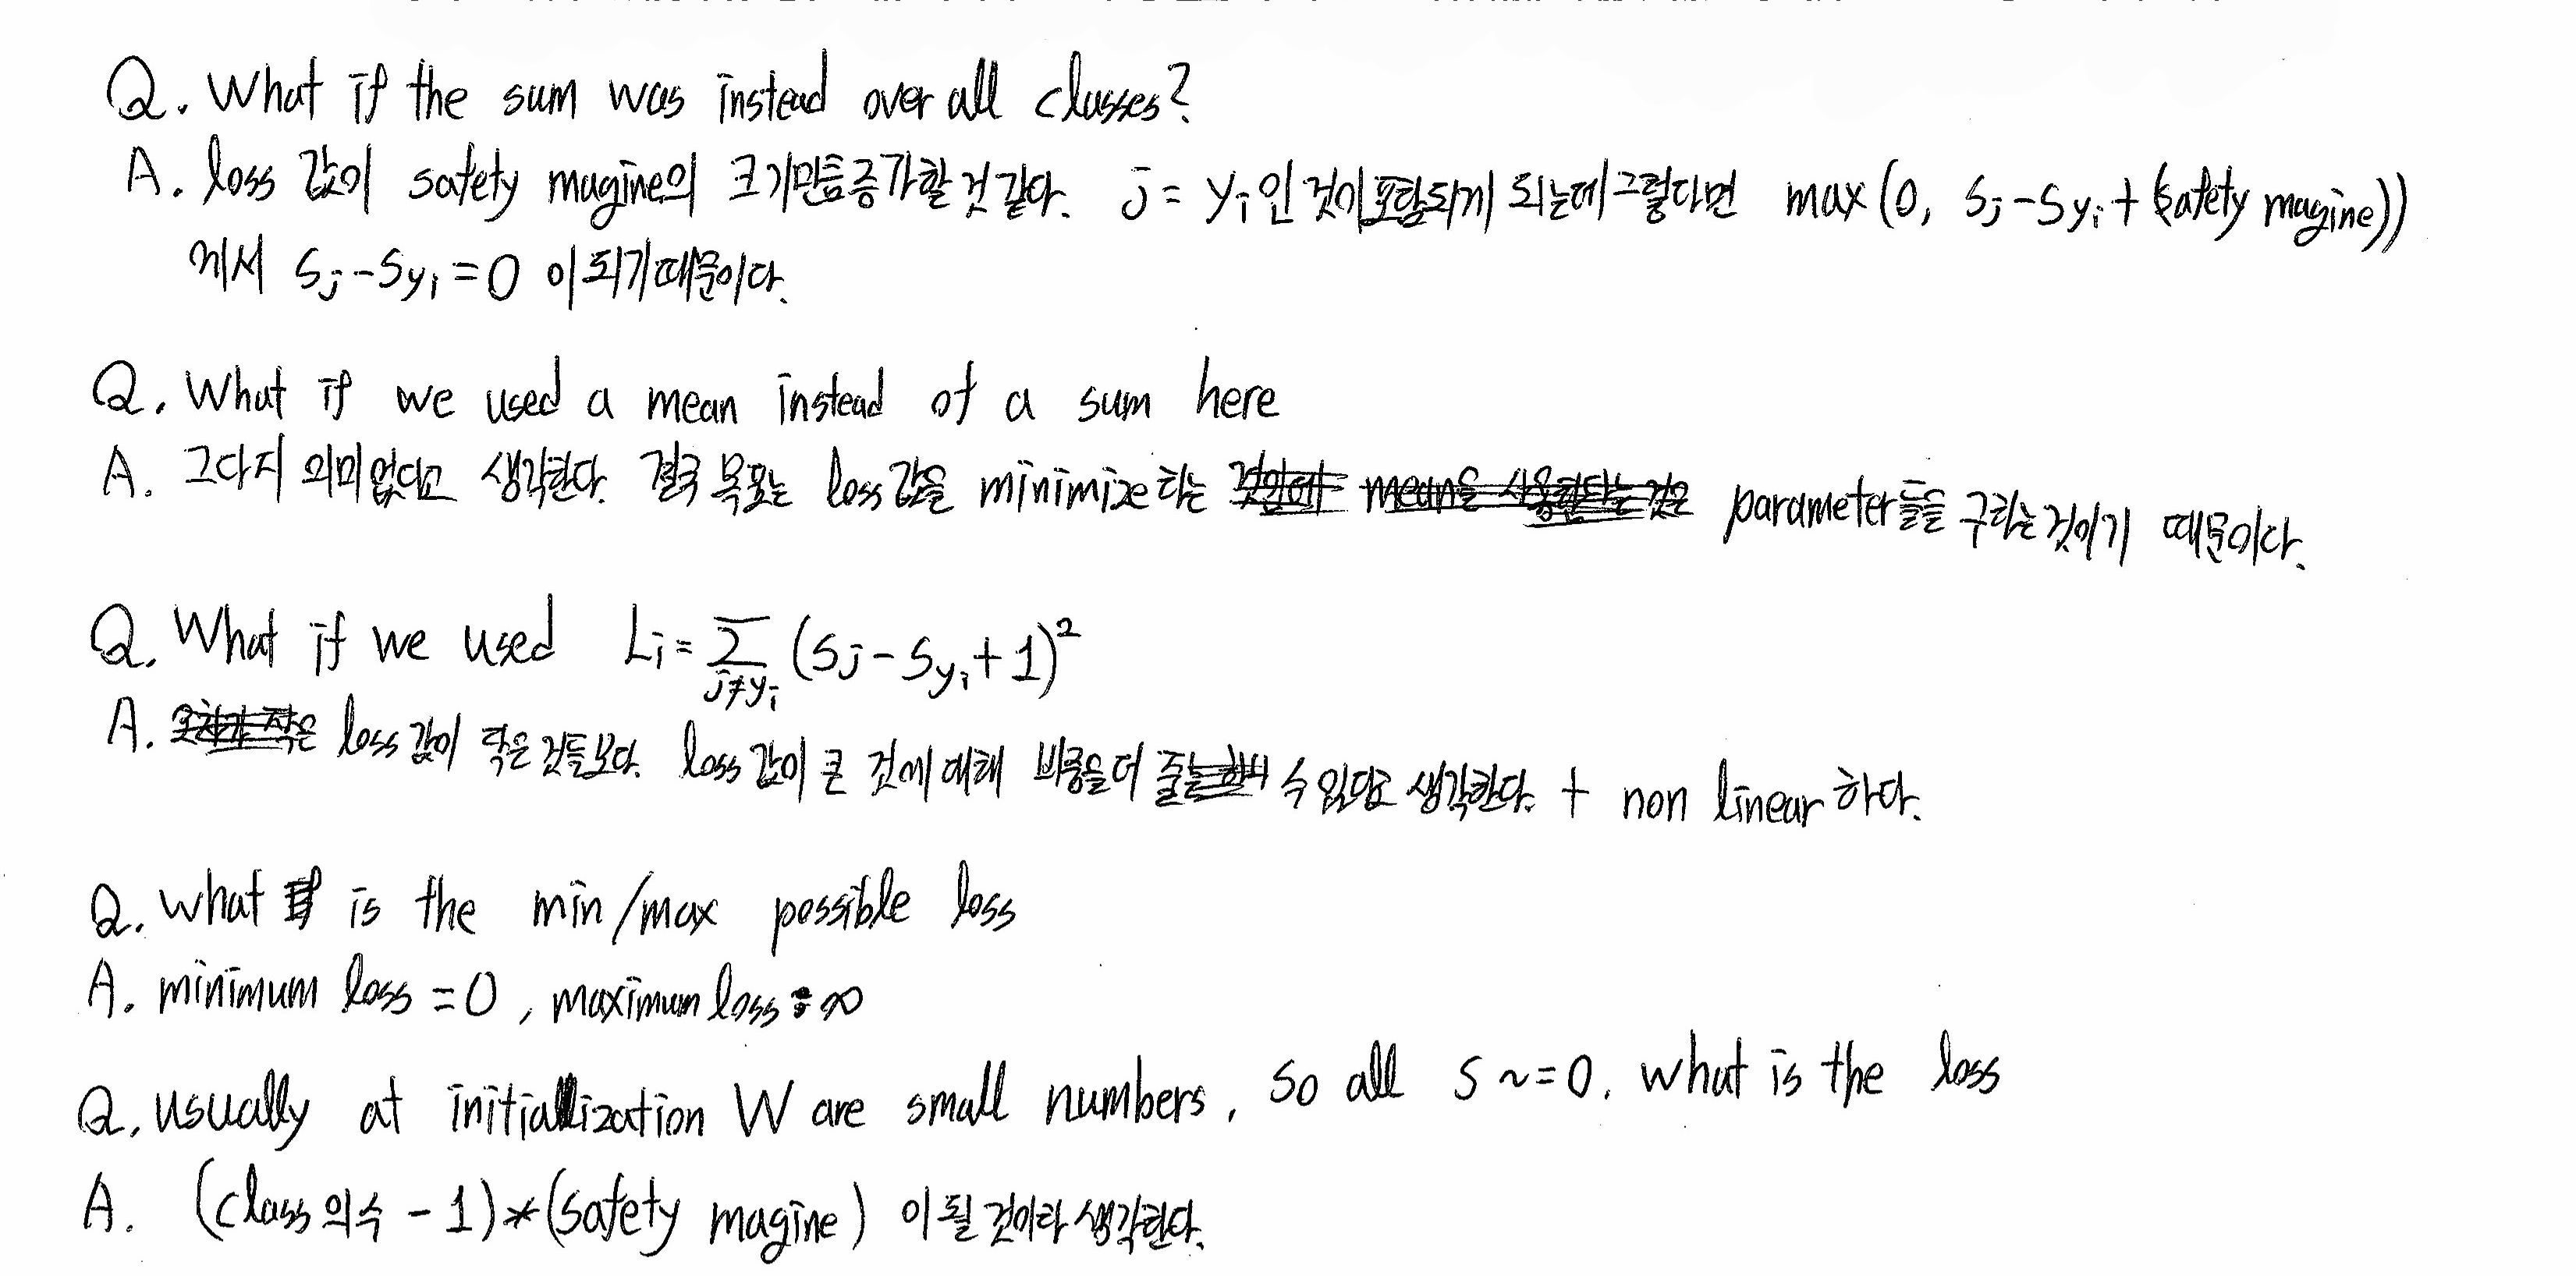 Q. What if the sum was instead over all classes?
A. loss 값이 safety magine의 크기만큼 증가할 것 같다. j = yi인 것이 포함되게 되는데 그렇다면 max(0, sj-syi+(safety magine))
에서 sj-syi=0 이 되기 때문이다.
Q. What if we used a mean instead of a sum here
A. 그다지 의미 없다고 생각한다. 결국 목표는 loss 값을 minimize 하는 parameter들을 구하는 것이기 때문이다.
Q. What if we used Li = Σj≠yi (sj-syi+1)²
A. loss 값이 작은 것들보다. loss 값이 큰 것에 대해 비중을 더 줄 수 있다고 생각한다. + non linear 하다.
Q. what is the min/max possible loss
A. minimum loss = 0, maximum loss = ∞
Q. usually at initialization W are small numbers, so all s ~= 0. what is the loss
A. (class의 수 - 1)*(safety magine) 이 될 것이라 생각한다.